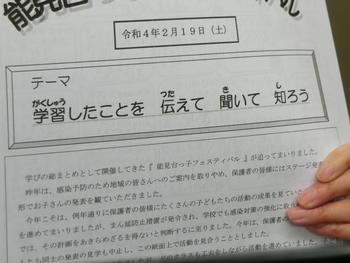 能見台
令和４年２月１９日（土）
テーマ
がくしゅう つた き し
学習したことを 伝えて 聞いて 知ろう
学びの総まとめとして開催してきた『 能見台っ子フェスティバル 』が迫ってまいりました。
昨年は、感染予防のため地域の皆さんへのご案内を取りやめ、保護者の皆様にはステージ発
形でお子さんの発表を観ていただきました。
今年こそは、例年通りに保護者の皆様にたくさんの子どもたちの活動の成果を見ていた
を進めてまいりましたが、まん延防止措置が発令され、学校でも感染対策の強化に取り
では、その計画をあきらめざるを得ないと判断するに至りました。今年は、保護者の
たち同士の発表の見学も中止し、この紙面上で活動を見合うこととしました。